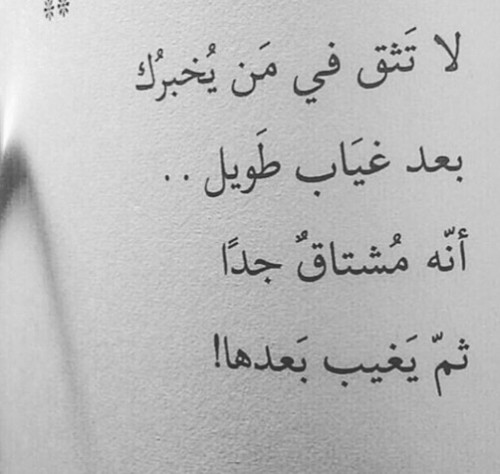 **
لا تَثق في مَن يُخبرُك
بعد غيَاب طَويل ..
أنّه مُشتاقٌ جدًا
ثمّ يَغيب بَعدها!